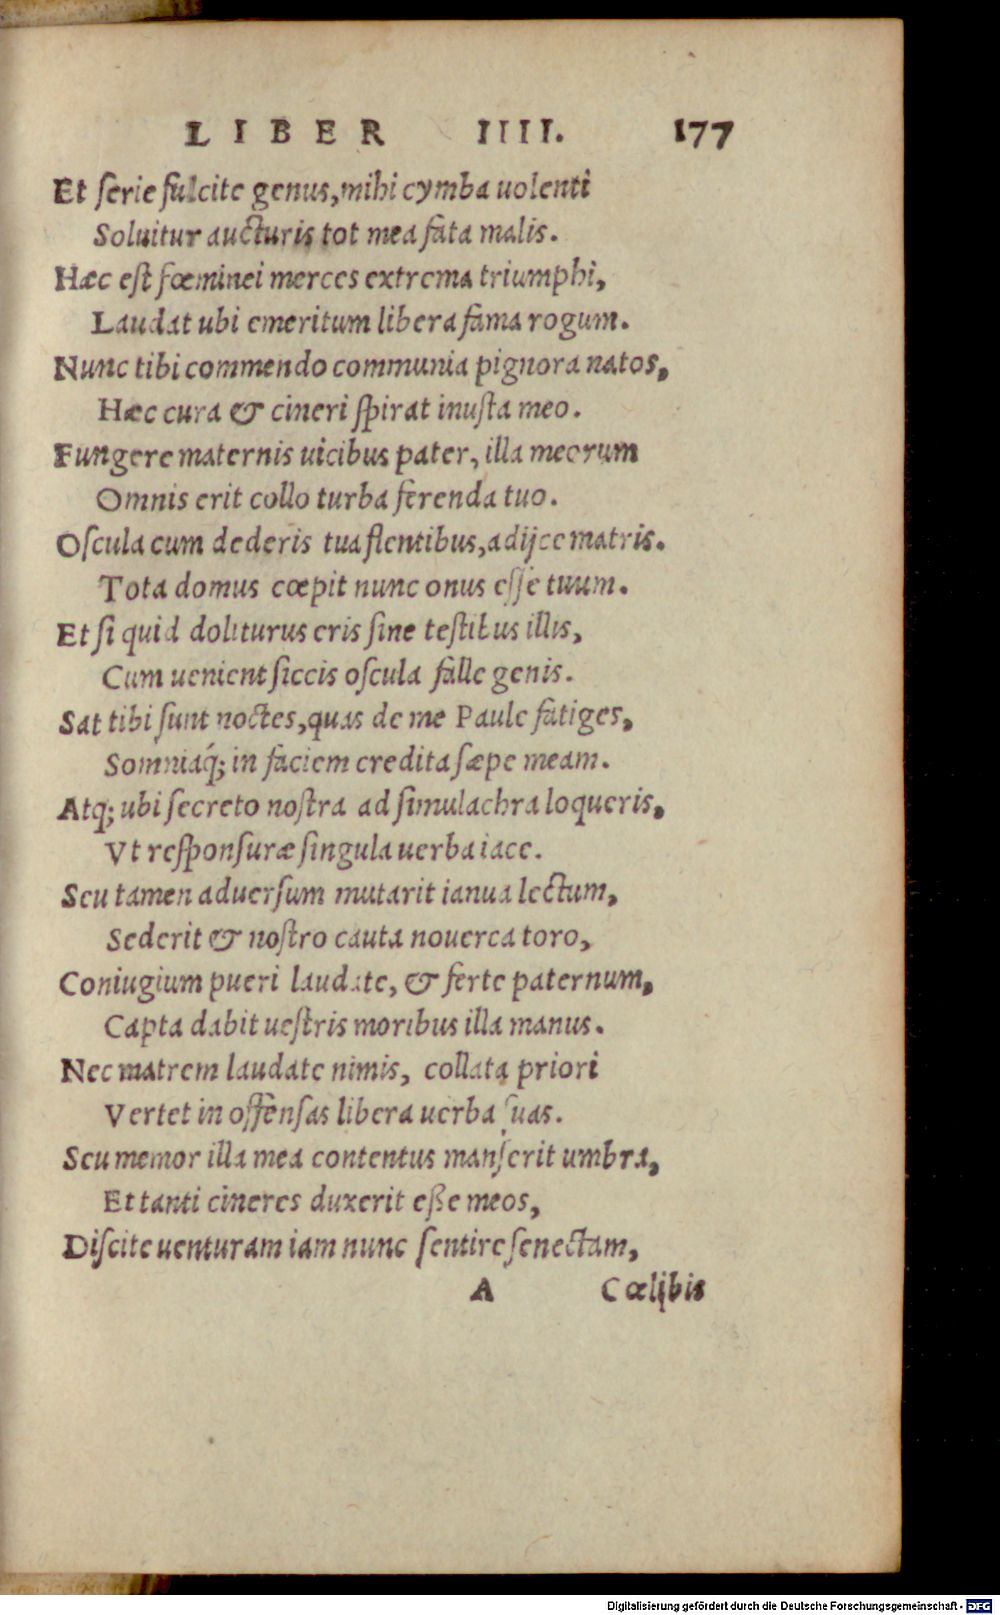 LIBER IIII. 177
Et serie fulcite genus, mihi cymba uolenti
Soluitur aucturis tot mea fata malis.
Hæc est fœminei merces extrema triumphi,
Laudat ubi emeritum libera fama rogum.
Nunc tibi commendo communia pignora natos,
Hæc cura & cineri spirat inusta meo.
Fungere maternis uicibus pater, illa meorum
Omnis erit collo turba ferenda tuo.
Oscula cum dederis tua flentibus, adijce matris.
Tota domus cœpit nunc onus esse tuum.
Et si quid doliturus eris sine testibus illis,
Cum uenient siccis oscula falle genis.
Sat tibi sunt noctes, quas de me Paule fatiges,
Somniáq; in faciem credita sæpe meam.
Atq; ubi secreto nostra ad simulachra loqueris,
Vt responsuræ singula uerba iace.
Seu tamen aduersum mutarit ianua lectum,
Sederit & nostro cauta nouerca toro,
Coniugium pueri laudate, & ferte paternum,
Capta dabit uestris moribus illa manus.
Nec matrem laudate nimis, collata priori
Vertet in offensas libera uerba suas.
Seu memor illa mea contentus manserit umbra,
Et tanti cineres duxerit eße meos,
Discite uenturam iam nunc sentire senectam,
A Cœlibis
Digitalisierung gefördert durch die Deutsche Forschungsgemeinschaft - DFG